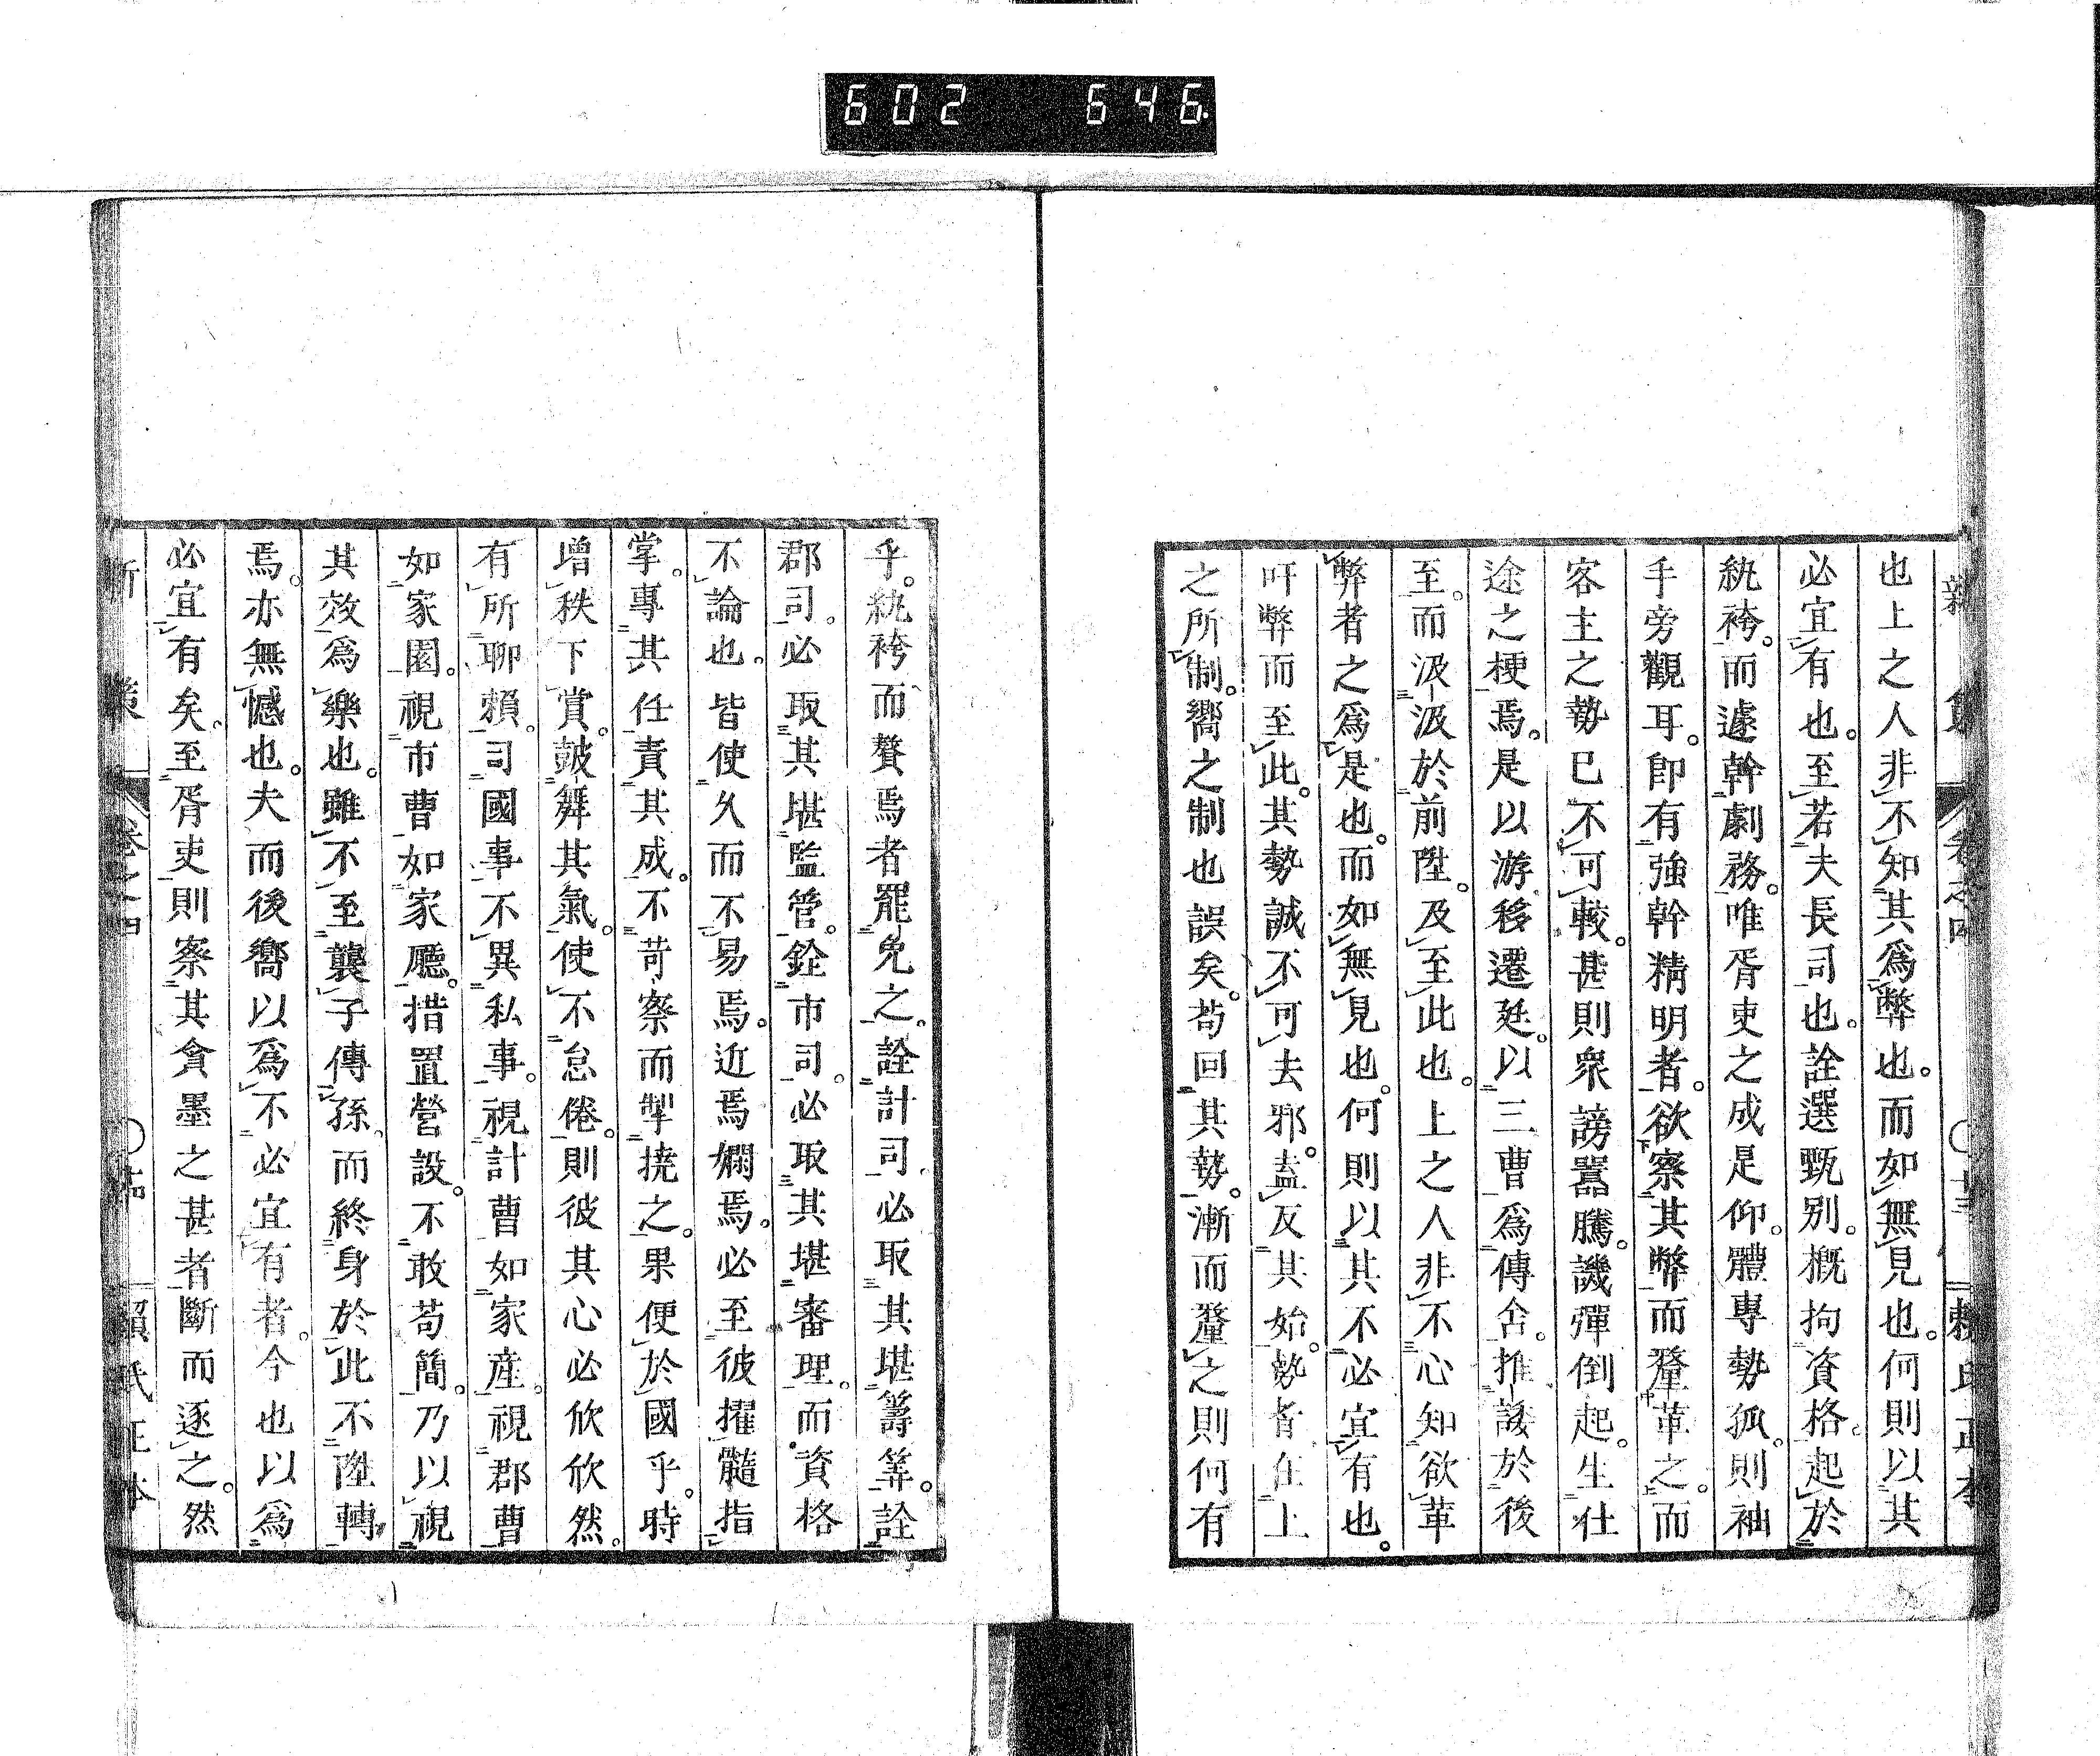 602 646
新策 卷之四 〇十三 賴氏正本
也上之人非不知其爲弊也。而如無見也。何則以其
必宜有也。至若夫長司也。詮選甄別。概拘資格。起於
紈袴。而遽幹劇務。唯胥吏之成是仰。體專勢孤。則袖
手旁觀耳。即有強幹精明者。欲察其弊而釐革之。而
客主之勢已不可較。甚則衆謗囂騰。譏彈倒起。生仕
途之梗焉。是以游移遷延。以三曹爲傳舍。推諉於後
至。而汲汲於前陞。及至此也。上之人非不心知欲革
弊者之爲是也。而如無見也。何則以其不必宜有也。
吁弊而至此。其勢誠不可去邪。盍反其始。勢者在上
之所制。嚮之制也誤矣。苟回其勢。漸而釐之則何有
乎。紈袴而贅焉者罷免之。詮計司必取其堪籌筭。詮
郡司。必取其堪監管。銓市司。必取其堪審理。而資格
不論也。皆使久而不易焉。近焉嫻焉。必至彼擢髓指
掌。專其任責其成。不苛察而掣撓之。果便於國乎。時
增秩下賞。鼓舞其氣。使不怠倦。則彼其心必欣欣然。
有所聊賴。司國事不異私事。視計曹如家產。視郡曹
如家園。視市曹如家廳。措置營設。不敢苟簡。乃以視
其效爲樂也。雖不至襲子傳孫。而終身於此不陞轉
焉。亦無憾也。夫而後嚮以爲不必宜有者。今也以爲
必宜有矣。至胥吏則察其貪墨之甚者斷而逐之。然
新策 卷之四 〇十四 賴氏正本